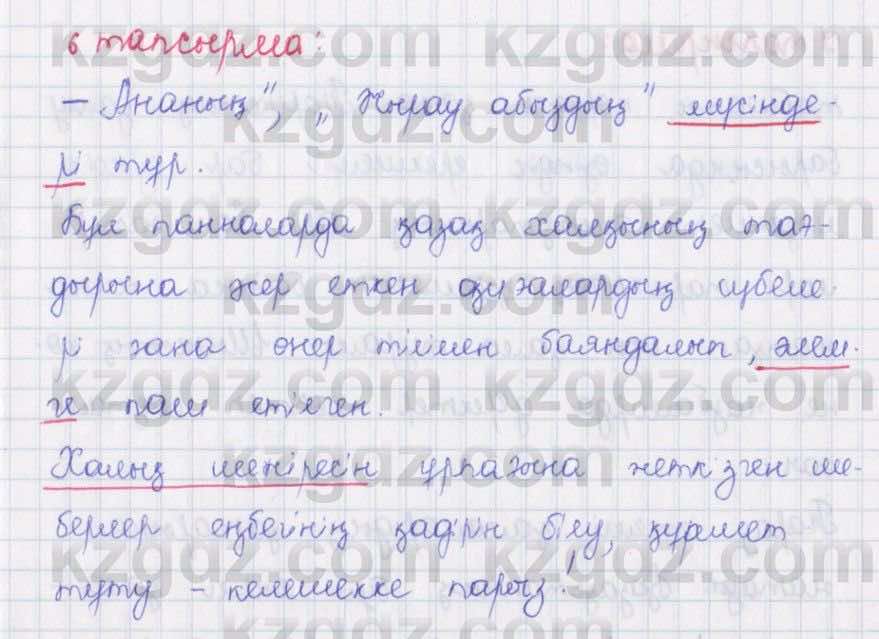 6 тапсырма:
– Ананың", „ Жырау абыздың" мүсінде-
рі тұр.
Бұл панноларда қазақ халқының тағ-
дырына әсер еткен оқиғалардың сүбеле
рі ғана өнер тілімен баяндалып, әлем-
ге паш етілген.
Халық шежіресін ұрпағына жеткізген ше-
берлер еңбегінің қадірін білу, құрмет
тұту – келешекке парыз!
kzgdz.com